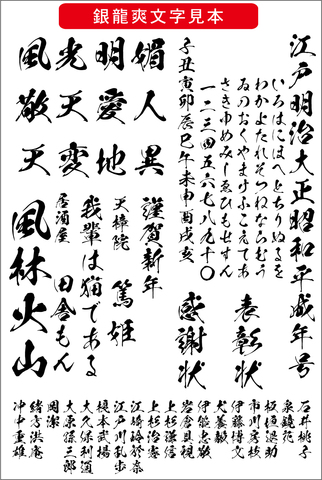 銀龍爽文字見本
江戸明治大正昭和平成年号
いろはにほへとちりぬるを
わかよたれそつねならむう
ゐのおくやまけふこえてあ
さきゆめみしゑひもせすん
一二三四五六七八九十〇
子丑寅卯辰巳午未申酉戌亥
表彰状
感謝状
媚人異
明愛地
光天変
風敬天
謹賀新年
篤姫
天樟院
我輩は猫である
居酒屋
田舎もん
風林火山
石井桃子
泉鏡花
板垣退助
市川房枝
伊藤博文
伊能忠敬
犬養毅
岩倉具視
上杉謙信
上杉治憲
江崎玲於奈
江戸川乱歩
榎本武揚
大久保利通
大原孫三郎
岡潔
緒方洪庵
沖中重雄